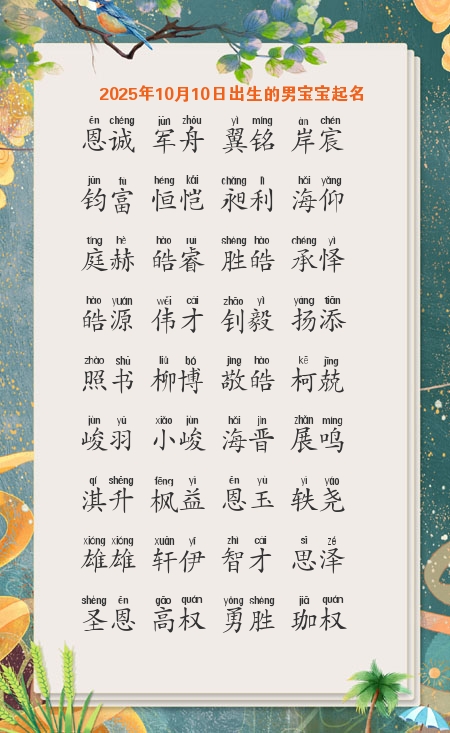 2025年10月10日出生的男宝宝起名
ēn chéng jūn zhōu yì míng àn chén
恩诚 军舟 翼铭 岸宸
jūn fù héng kǎi chǎng lì hǎi yǎng
钧富 恒恺 昶利 海仰
tíng hè hào ruì shèng hào chéng yì
庭赫 皓睿 胜皓 承怿
hào yuán wěi cái zhāo yì yáng tiān
皓源 伟才 钊毅 扬添
zhào shū liǔ bó jìng hào kē jīng
照书 柳博 敬皓 柯兢
jùn yǔ xiǎo jùn hǎi jìn zhǎn míng
峻羽 小峻 海晋 展鸣
qí shēng fēng yì ēn yù yì yáo
淇升 枫益 恩玉 轶尧
xióng xióng xuān yī zhì cái sī zé
雄雄 轩伊 智才 思泽
shèng ēn gāo quán yǒng shèng jiā quán
圣恩 高权 勇胜 珈权